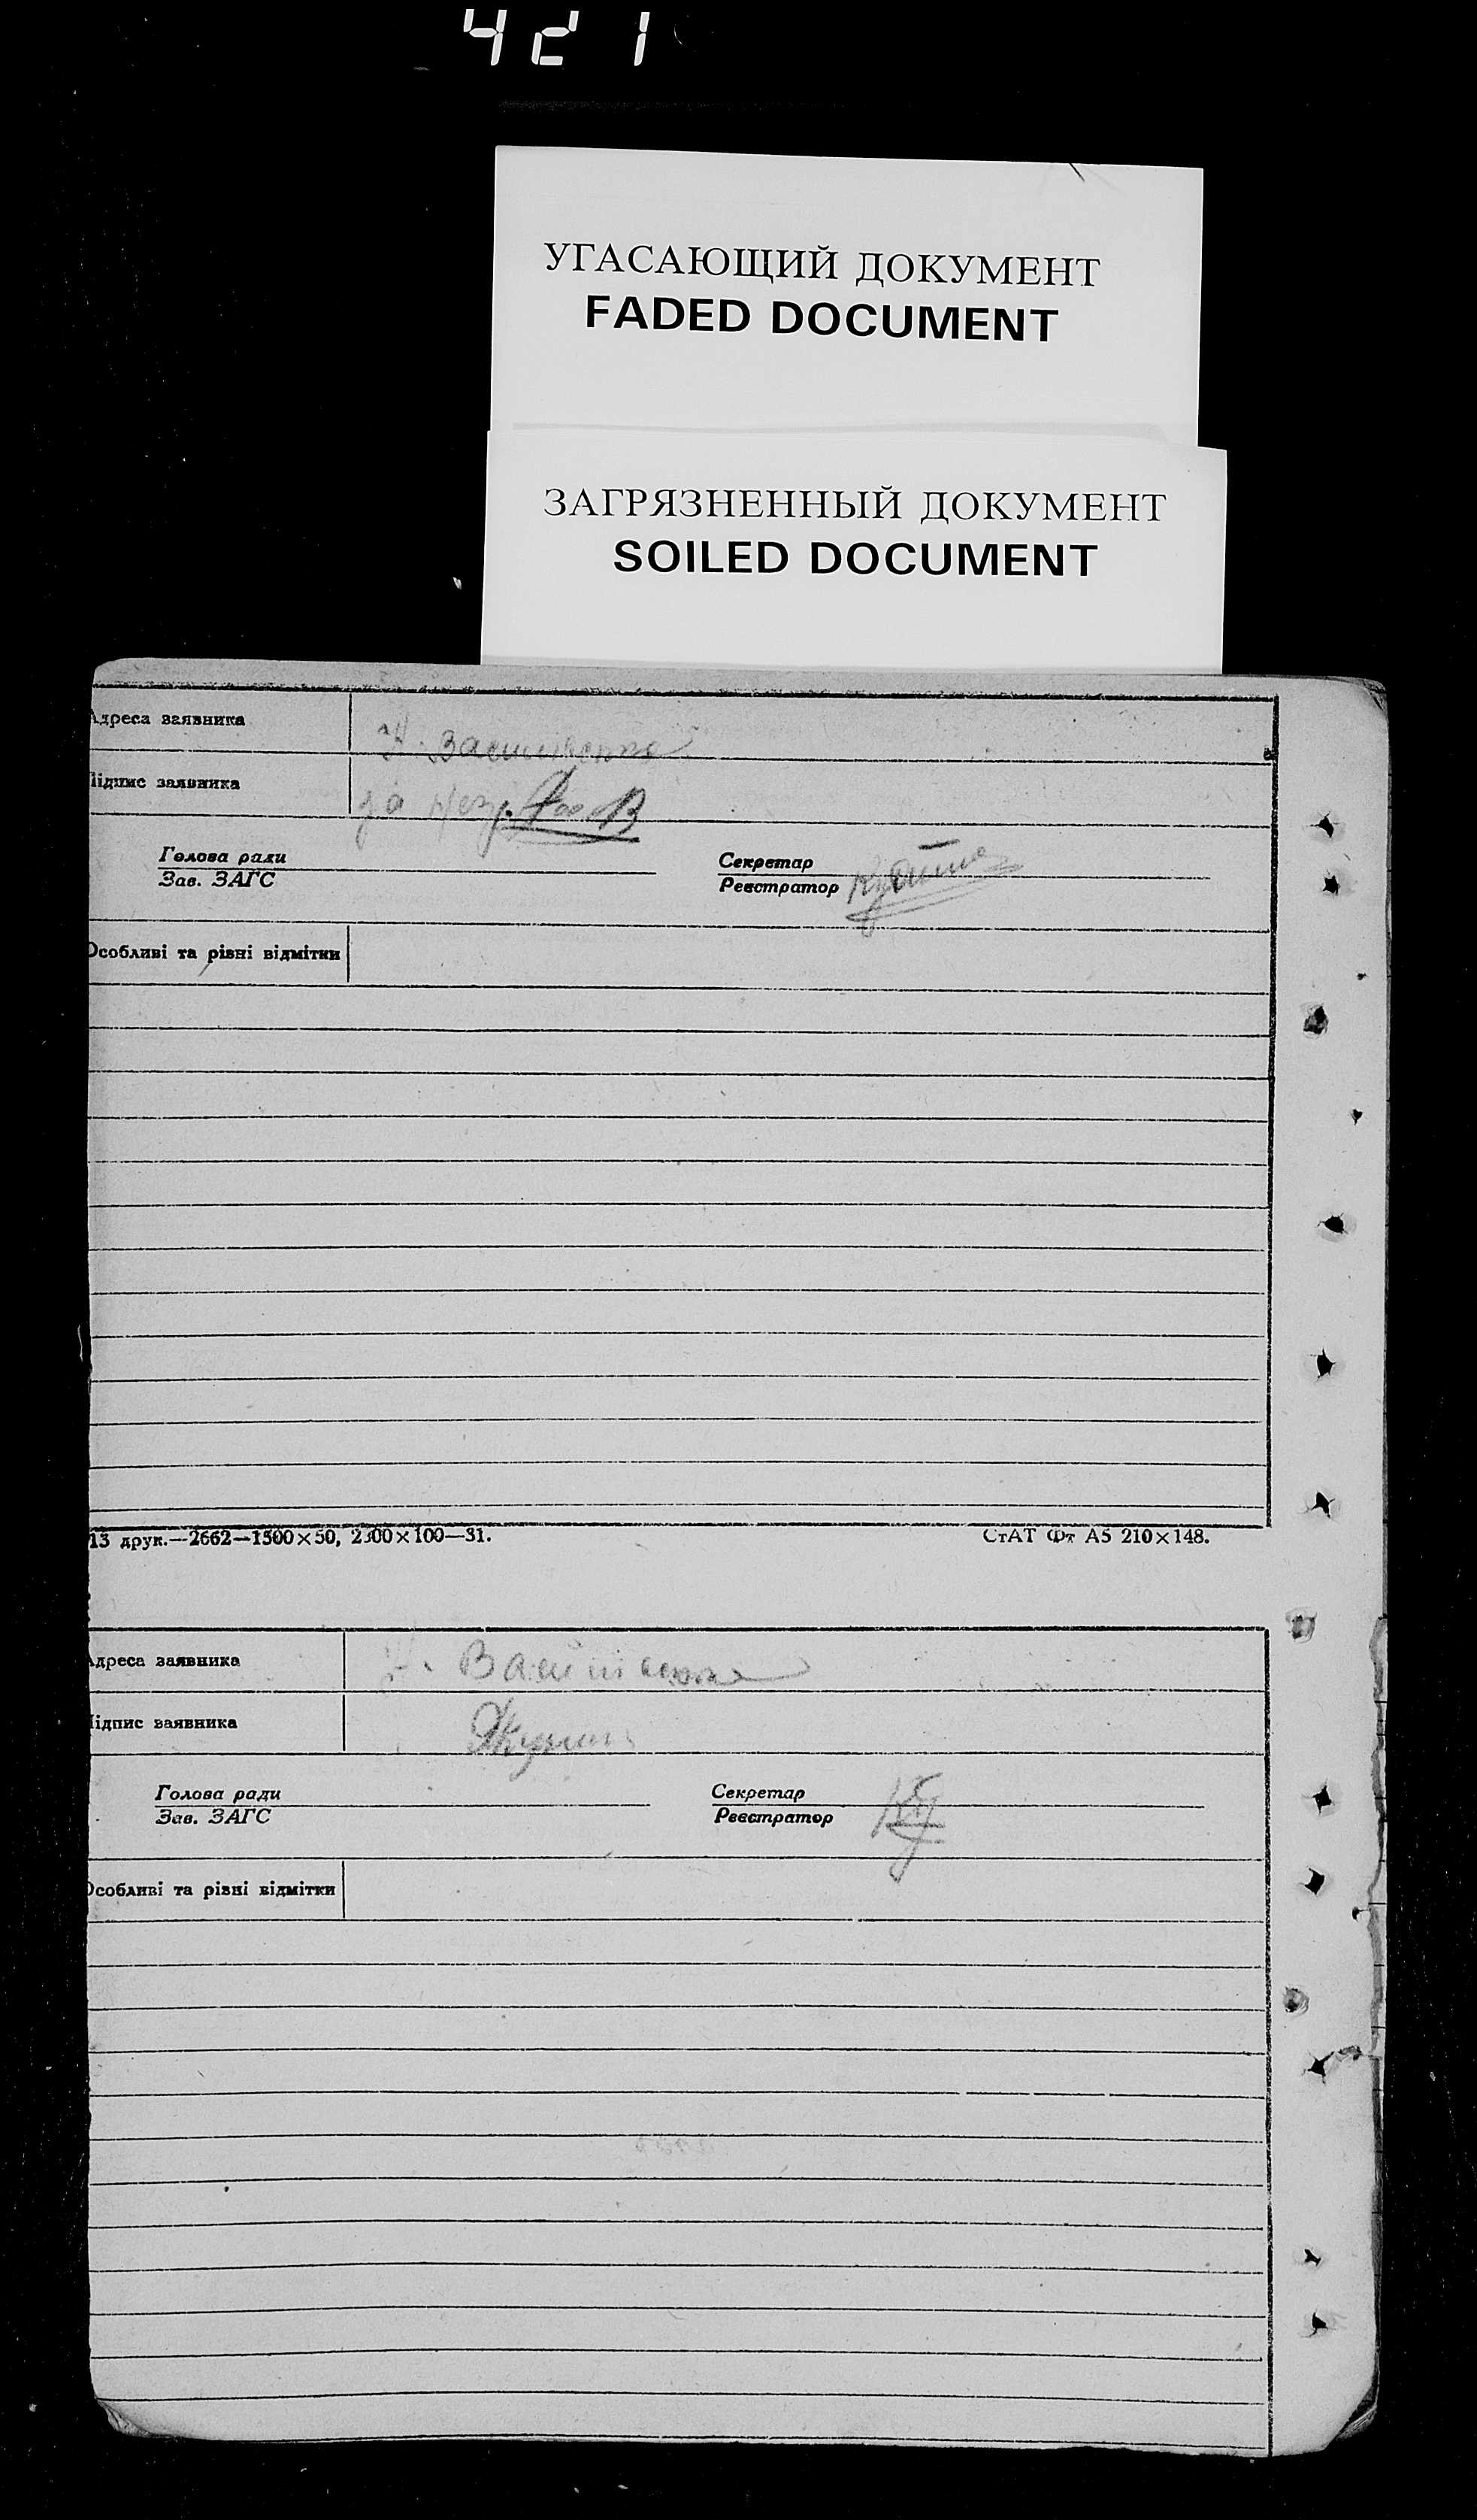 421
УГАСАЮЩИЙ ДОКУМЕНТ
FADED DOCUMENT
ЗАГРЯЗНЕННЫЙ ДОКУМЕНТ
SOILED DOCUMENT
Адреса заявника
Підпис заявника
за
Голова ради
Зав. ЗАГС
Секретар
Реєстратор
Особливі та різні відмітки
13 друк.—2662—1500×50, 2300×100—31.
СтАТ Фт А5 210×148.
Адреса заявника
Підпис заявника
Голова ради
Зав. ЗАГС
Секретар
Реєстратор
Особливі та різні відмітки